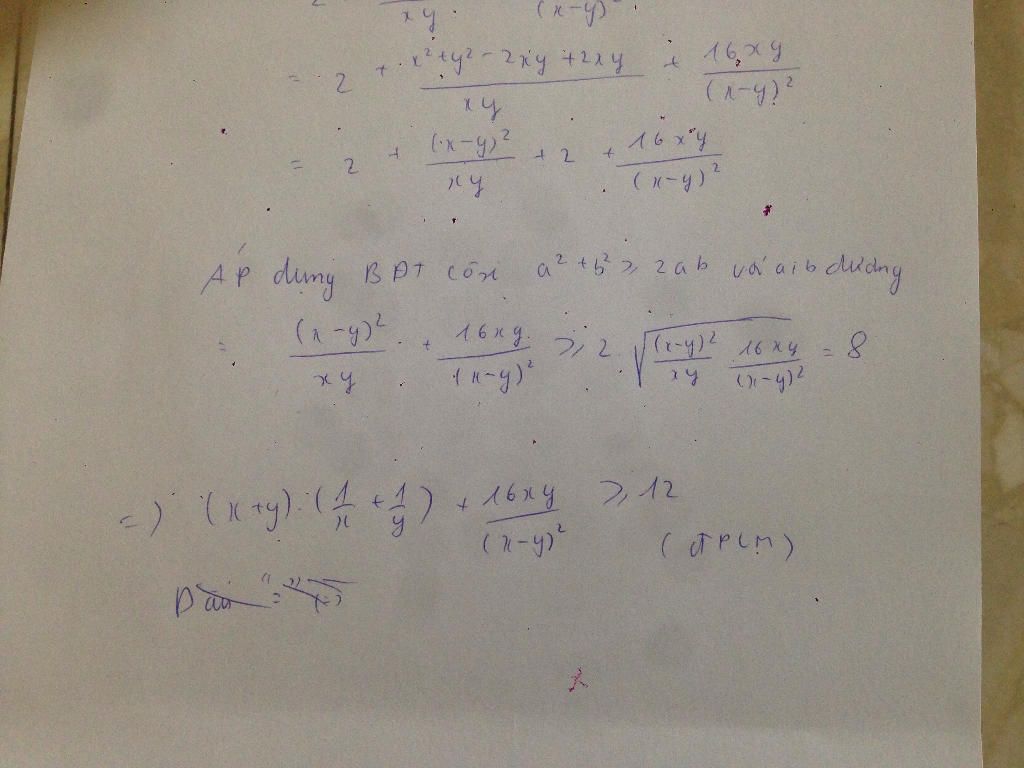 2 xy (x-y)²
= 2 + x²+y²-2xy+2xy / xy + 16xy / (x-y)²
= 2 + (x-y)² / xy + 2 + 16xy / (x-y)²
Áp dụng BĐT côsi a²+b² ⩾ 2ab với a,b dương
= (x-y)² / xy + 16xy / (x-y)² ⩾ 2. √((x-y)² / xy 16xy / (x-y)²) = 8
=) (x+y).(1/x + 1/y) + 16xy / (x-y)² ⩾ 12
(đPCM)
Dấu "="